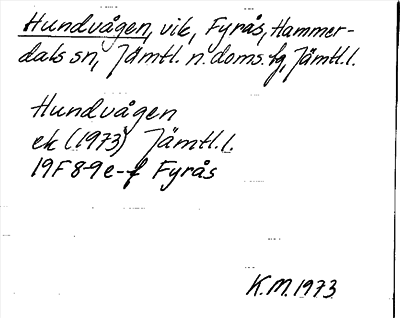 Hundvågen, vik, Fyrås, Hammer-
dals sn, Jämtl. n. doms.fg, Jämtl.l.
Hundvågen
ek (1973) Jämtl.l.
19F 8-9 e-f Fyrås
K.M. 1973